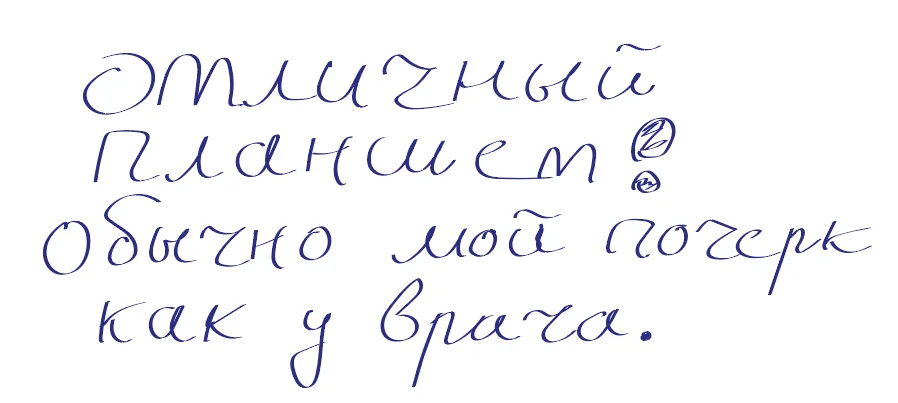 Отличный
планшет!
Обычно мой почерк
как у врача.